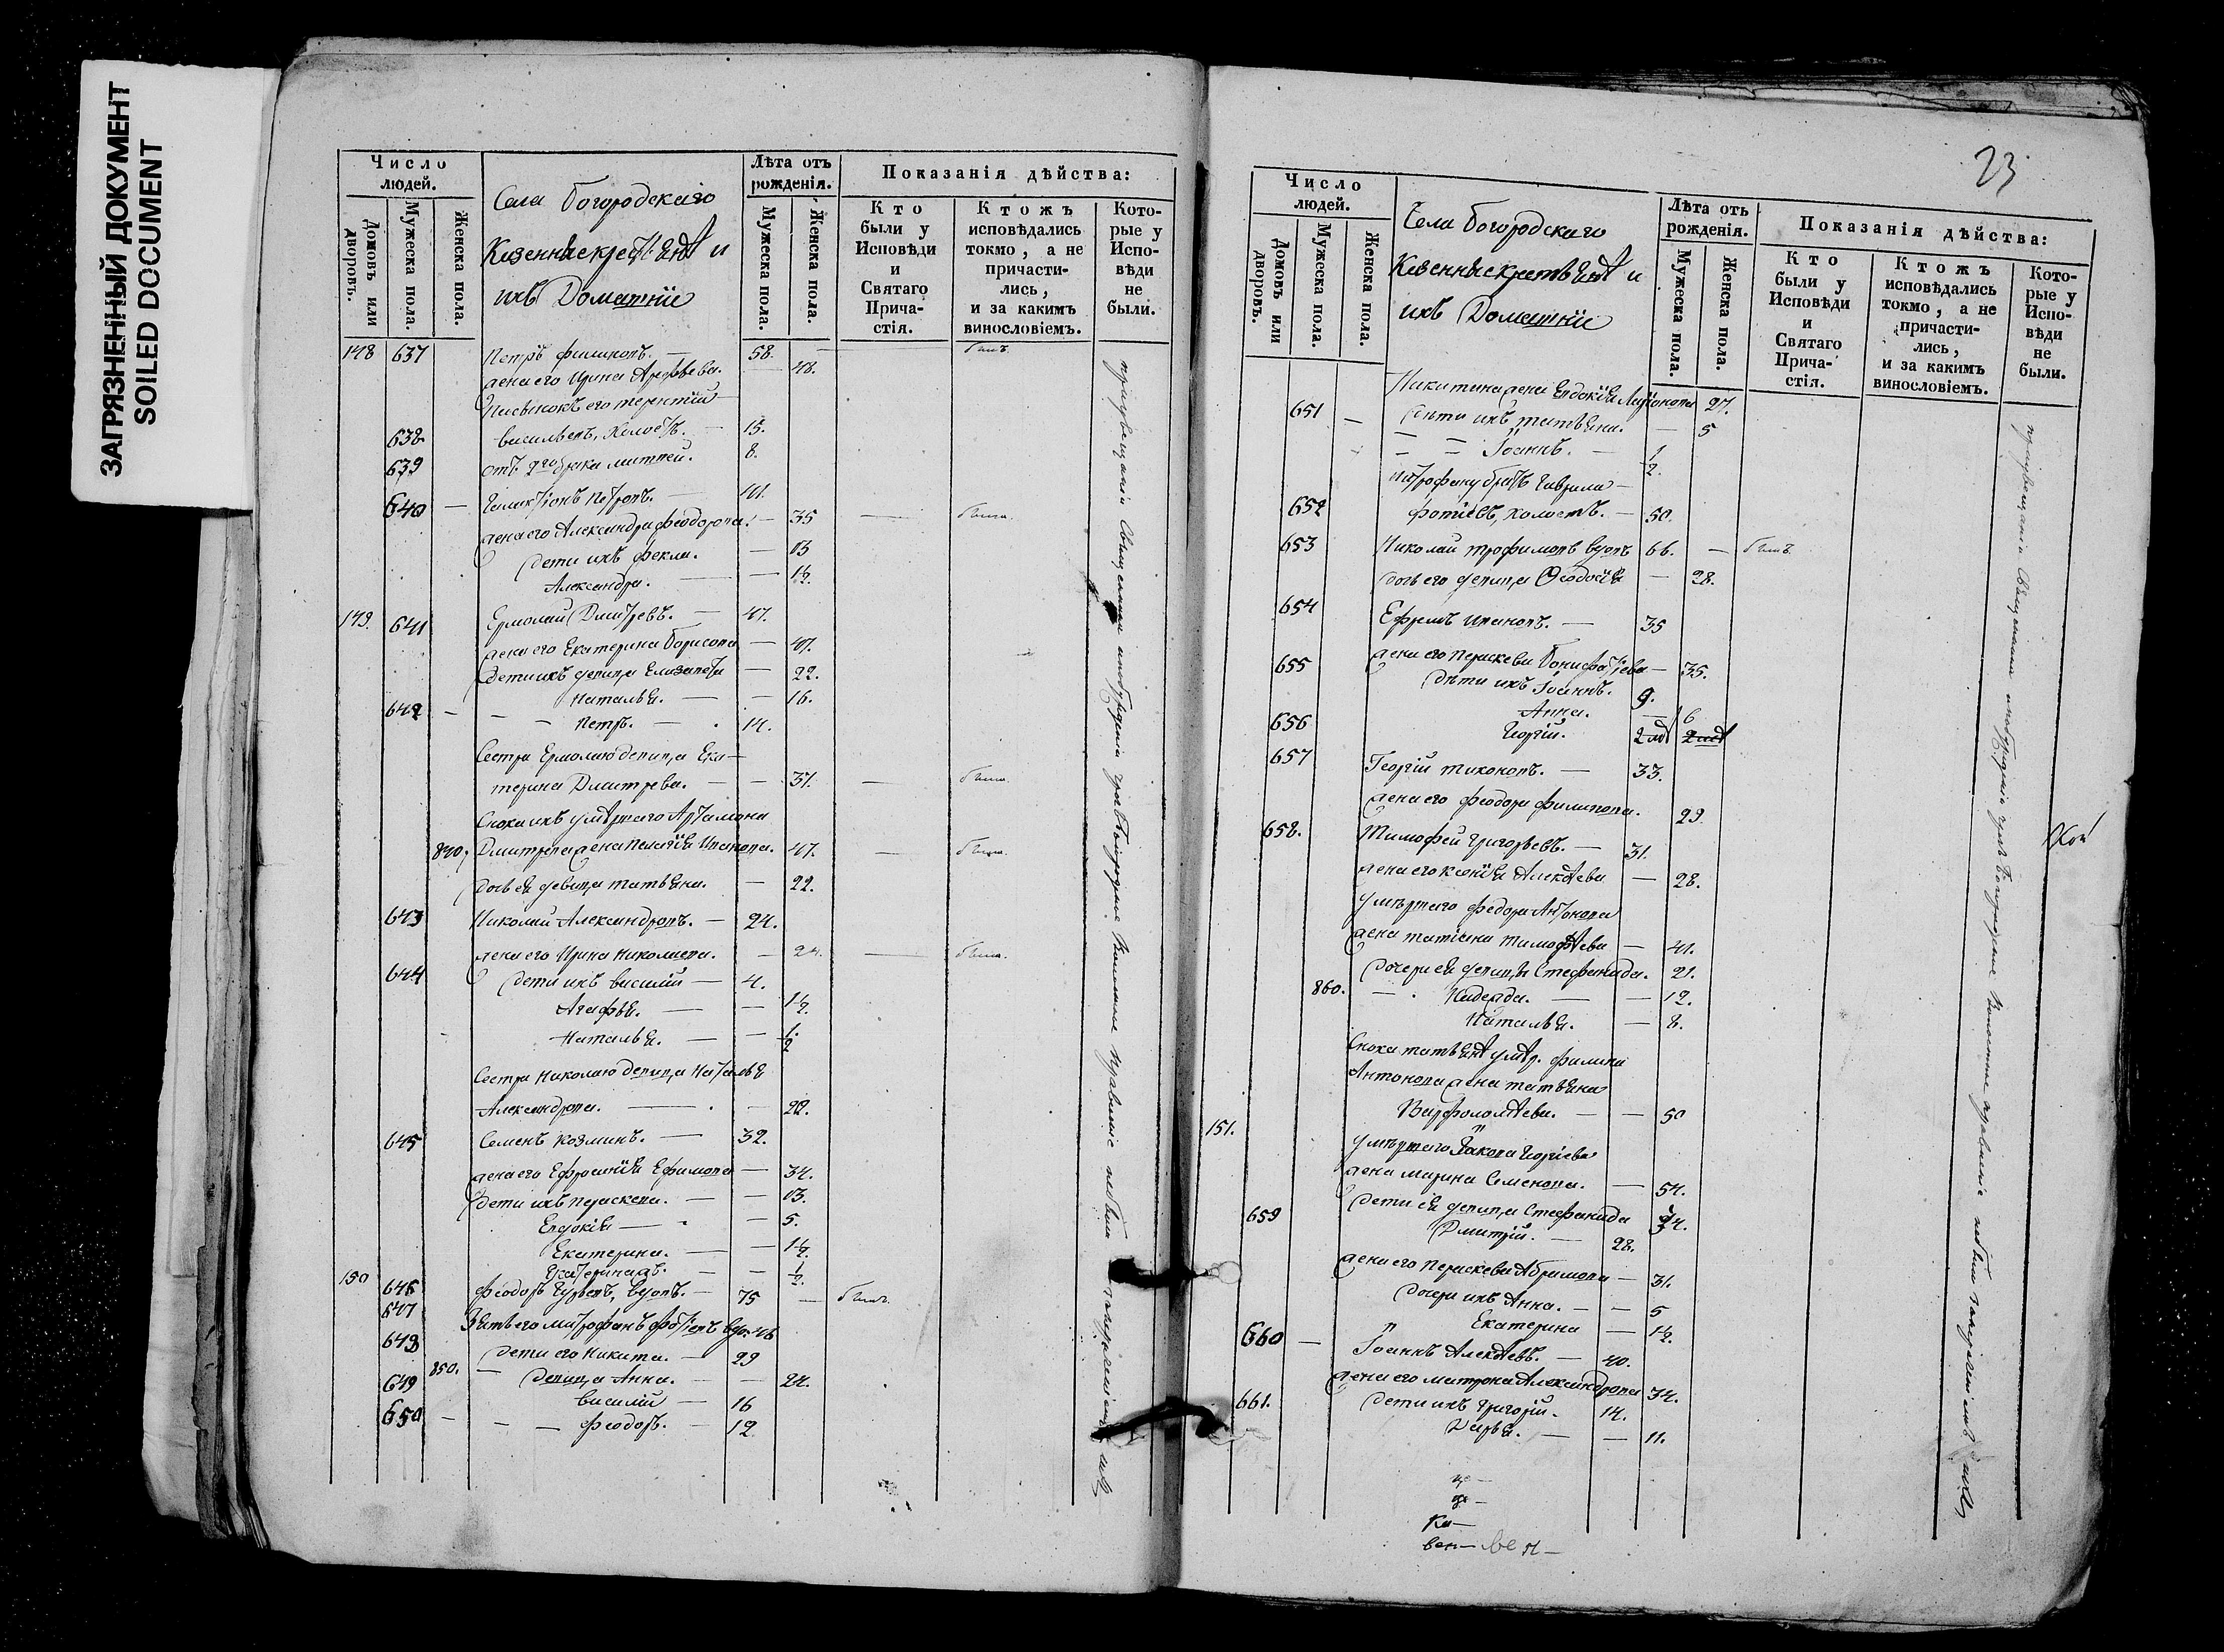 ЗАГРЯЗНЕННЫЙ ДОКУМЕНТ
SOILED DOCUMENT
Число людей.
Домовъ или дворовъ.
Мужеска пола.
Женска пола.
Села Богородскаго
Казенные крестьяне и
ихъ Домашніи
Лѣта отъ рожденія.
Мужеска пола.
Женска пола.
Показанія дѣйства:
Кто были у Исповѣди и Святаго Прича-стія.
Ктожъ исповѣдались токмо, а не причасти-лись, и за какимъ винословіемъ.
Кото-рые у Испо-вѣди не были.
148 637 Петръ Филиповъ. — 58. — былъ.
жена его Ирина Арефьева. — 48.
Племянокъ его терентій
638 васильевъ, холостъ. — 15.
639 отъ 2го брака матѳей. 8.
640 — Галактіонъ Петровъ. — 41.
жена его Александра феодорова. — 35 — была.
дети ихъ Фекла. — 13
Александра. — — 1½.
149. 641 Ермолай Дмитревъ. — 47.
жена его Екатерина борисова — 47.
дети ихъ девица Елизавета — 22.
Наталья. — — 16.
642 — — — Петръ. — 14.
Сестра Ермолаю девица Ека-
терина Дмитрева. — — 37. — была.
Сноха ихъ умершаго Артамона
840. Дмитрева жена Пелагія Иванова. 47. — была.
дочь ея девица татьяна. — 22.
643 Николай Александровъ. — 24.
жена его Ирина Николаева. — 24. — была.
644 дети ихъ василій — 4.
Агафья. — — 1½.
Наталья. — — ½
Сестра Николаю девица Наталья
Александрова. — — 28.
645 Семенъ козминъ. — 32.
жена его Ефросинія Ефимова — 34.
дети ихъ параскева. — — 13.
Евдокія — — 5.
Екатерина. — — 1½.
Екатерина ж. — — ½.
150 646 Феодоръ Гурьевъ, вдовъ. — 75 — былъ.
647 Зять его митрофанъ фотіевъ вдо. 46
648 дети его Никита. — 29
850. — девица Анна. — — 24.
649 василій — 16
650 — — — феодоръ. — 12
23
Число людей.
Домовъ или дворовъ.
Мужеска пола.
Женска пола.
Села Богородскаго
Казенные крестьяне и
ихъ Домашніи
Лѣта отъ рожденія.
Мужеска пола.
Женска пола.
Показанія дѣйства:
Кто были у Исповѣди и Святаго Прича-стія.
Ктожъ исповѣдались токмо, а не причасти-лись, и за какимъ винословіемъ.
Кото-рые у Испо-вѣди не были.
Никитина жена Евдокія Ларіонова 27.
651 — дѣти ихъ татьяна. — 5
— — Іоаннъ. — ½.
митрофану братъ Гаврила —
652 фотіевъ, холостъ. — 50.
653 Николай трофимовъ вдовъ 66. — былъ.
дочь его девица Феодосія — 28.
654 Ефремъ ивановъ. — 35
жена его параскева Бонифатіева — 35.
655 дѣти ихъ Іоаннъ. 9.
Анна. — 6
656 Георгій. 2 мѣ
657 Георгій тихоновъ. — 33.
жена его феодора филипова. 29.
658. Тимофей григорьевъ. — 31.
жена его ксенія Алексѣева — 28.
умершаго федора Антонова
жена татіана тимофѣева — 41.
дочери ея девицы Стефанида. 21.
860. — Надежда. — — 12.
Наталья. — 8.
Сноха татьянѣ умер. филипа
Антонова жена татьяна
Варфоломѣева. — — 50
151. умершаго Іакова Георгіева
жена марина Семенова. — 54.
дети ея девица Стефанида 34.
659 Дмитрій. — 28.
жена его параскева Абрамова — 31.
дочери ихъ Анна. — — 5
Екатерина — 1½.
660 — Іоаннъ Алексѣевъ. — 40.
жена его матрона Александрова 34.
661. дети ихъ григорій. 14.
Дарья. — — 11.